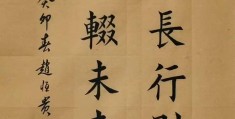 長行
輟未
癸卯春趙恒貴